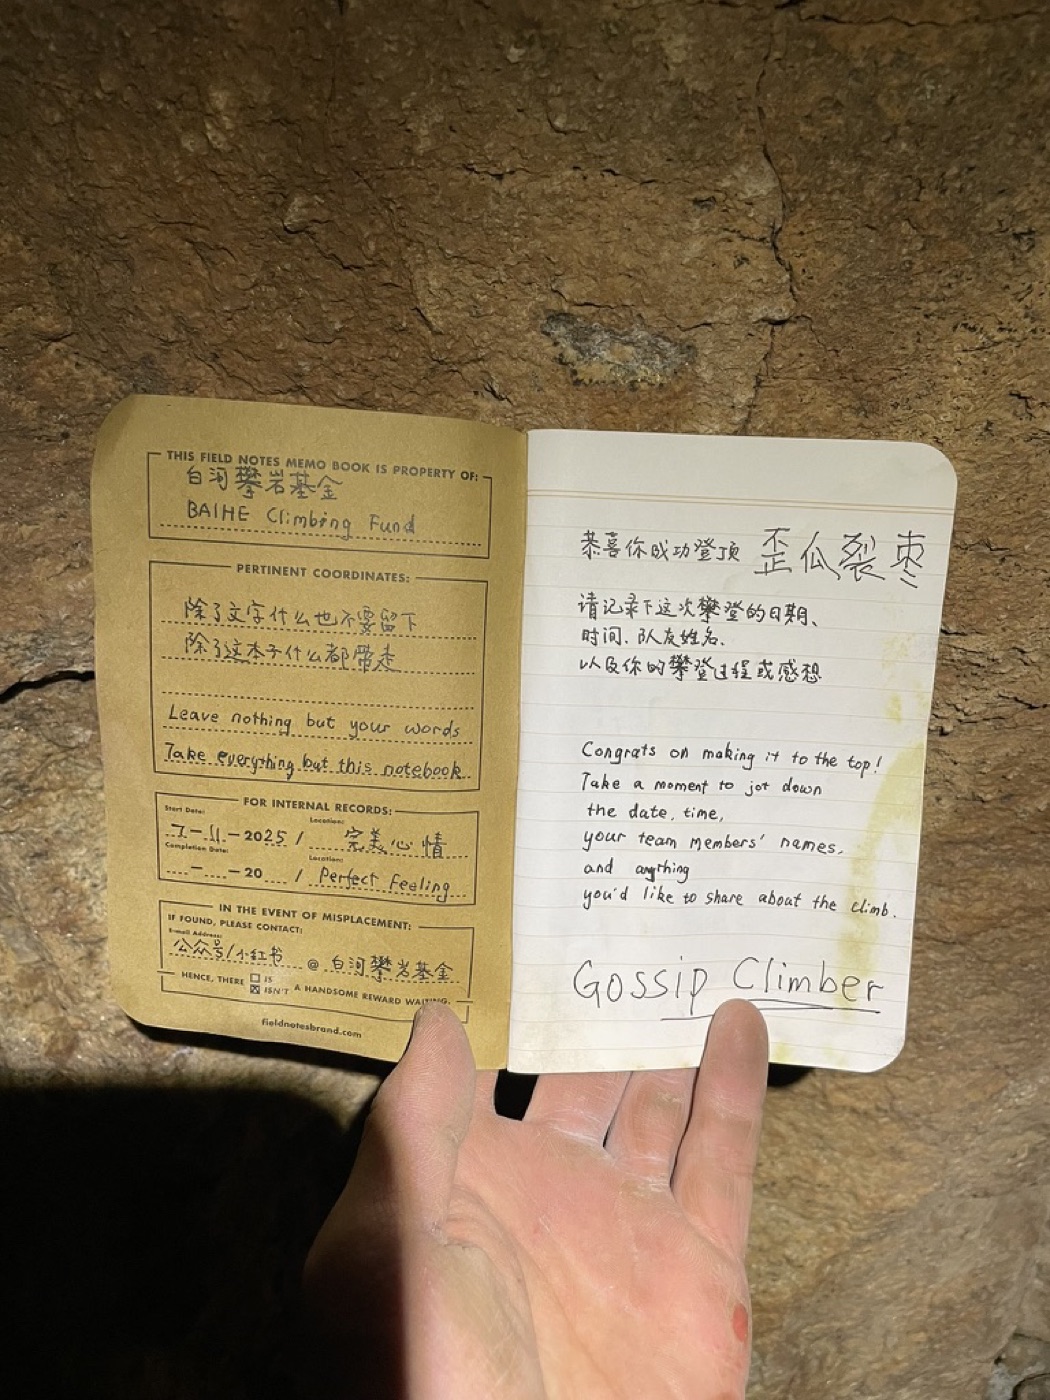 THIS FIELD NOTES MEMO BOOK IS PROPERTY OF:
白河攀岩基金
BAIHE Climbing Fund
PERTINENT COORDINATES:
除了文字什么也不要留下
除了这本子什么都带走
Leave nothing but your words
Take everything but this notebook
FOR INTERNAL RECORDS:
Start Date: Location:
7-11-2025 / 完美心情
Completion Date: Location:
- -20 / Perfect Feeling
IN THE EVENT OF MISPLACEMENT:
IF FOUND, PLEASE CONTACT:
E-mail Address:
公众号/小红书 @ 白河攀岩基金
HENCE, THERE IS
ISN'T A HANDSOME REWARD WAITING.
fieldnotesbrand.com
恭喜你成功登顶 歪瓜裂枣
请记录下这次攀登的日期、
时间、队友姓名、
以及你的攀登过程或感想
Congrats on making it to the top!
Take a moment to jot down
the date, time,
your team members' names,
and anything
you'd like to share about the climb.
Gossip Climber